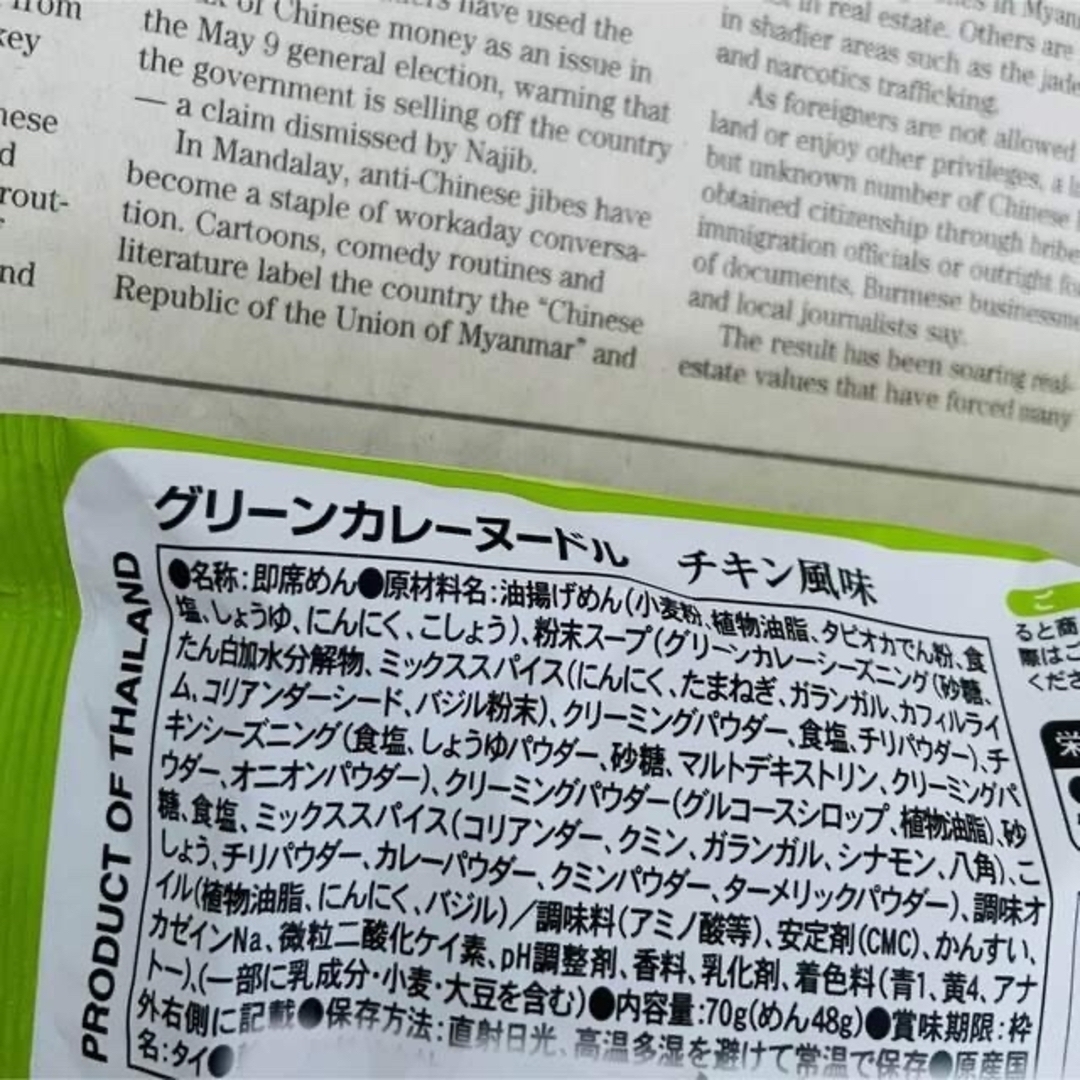 from
key
nese
d
rout-
nd
of Chinese money as an issue in
have used the
the May 9 general election, warning that
the government is selling off the country
— a claim dismissed by Najib.
In Mandalay, anti-Chinese jibes have
become a staple of workaday conversa-
tion. Cartoons, comedy routines and
literature label the country the “Chinese
Republic of the Union of Myanmar” and
in Myan
in real estate. Others are
in shadier areas such as the jade
and narcotics trafficking.
As foreigners are not allowed
land or enjoy other privileges, a
but unknown number of Chinese
obtained citizenship through bribe
immigration officials or outright fo
of documents, Burmese businessme
and local journalists say.
The result has been soaring real-
estate values that have forced many
グリーンカレーヌードル チキン風味
PRODUCT OF THAILAND
●名称:即席めん●原材料名:油揚げめん(小麦粉、植物油脂、タピオカでん粉、食
塩、しょうゆ、にんにく、こしょう)、粉末スープ(グリーンカレーシーズニング(砂糖、
たん白加水分解物、ミックススパイス(にんにく、たまねぎ、ガランガル、カフィルライ
ム、コリアンダーシード、バジル粉末)、クリーミングパウダー、食塩、チリパウダー)、チ
キンシーズニング(食塩、しょうゆパウダー、砂糖、マルトデキストリン、クリーミングパ
ウダー、オニオンパウダー)、クリーミングパウダー(グルコースシロップ、植物油脂)、砂
糖、食塩、ミックススパイス(コリアンダー、クミン、ガランガル、シナモン、八角)、こ
しょう、チリパウダー、カレーパウダー、クミンパウダー、ターメリックパウダー)、調味オ
イル(植物油脂、にんにく、バジル)/調味料(アミノ酸等)、安定剤(CMC)、かんすい、
カゼインNa、微粒二酸化ケイ素、pH調整剤、香料、乳化剤、着色料(青1、黄4、アナ
トー)、(一部に乳成分・小麦・大豆を含む)●内容量:70g(めん48g)●賞味期限:枠
外右側に記載●保存方法:直射日光、高温多湿を避けて常温で保存●原産国
名:タイ●
ご
ると商
際はご
くださ
栄